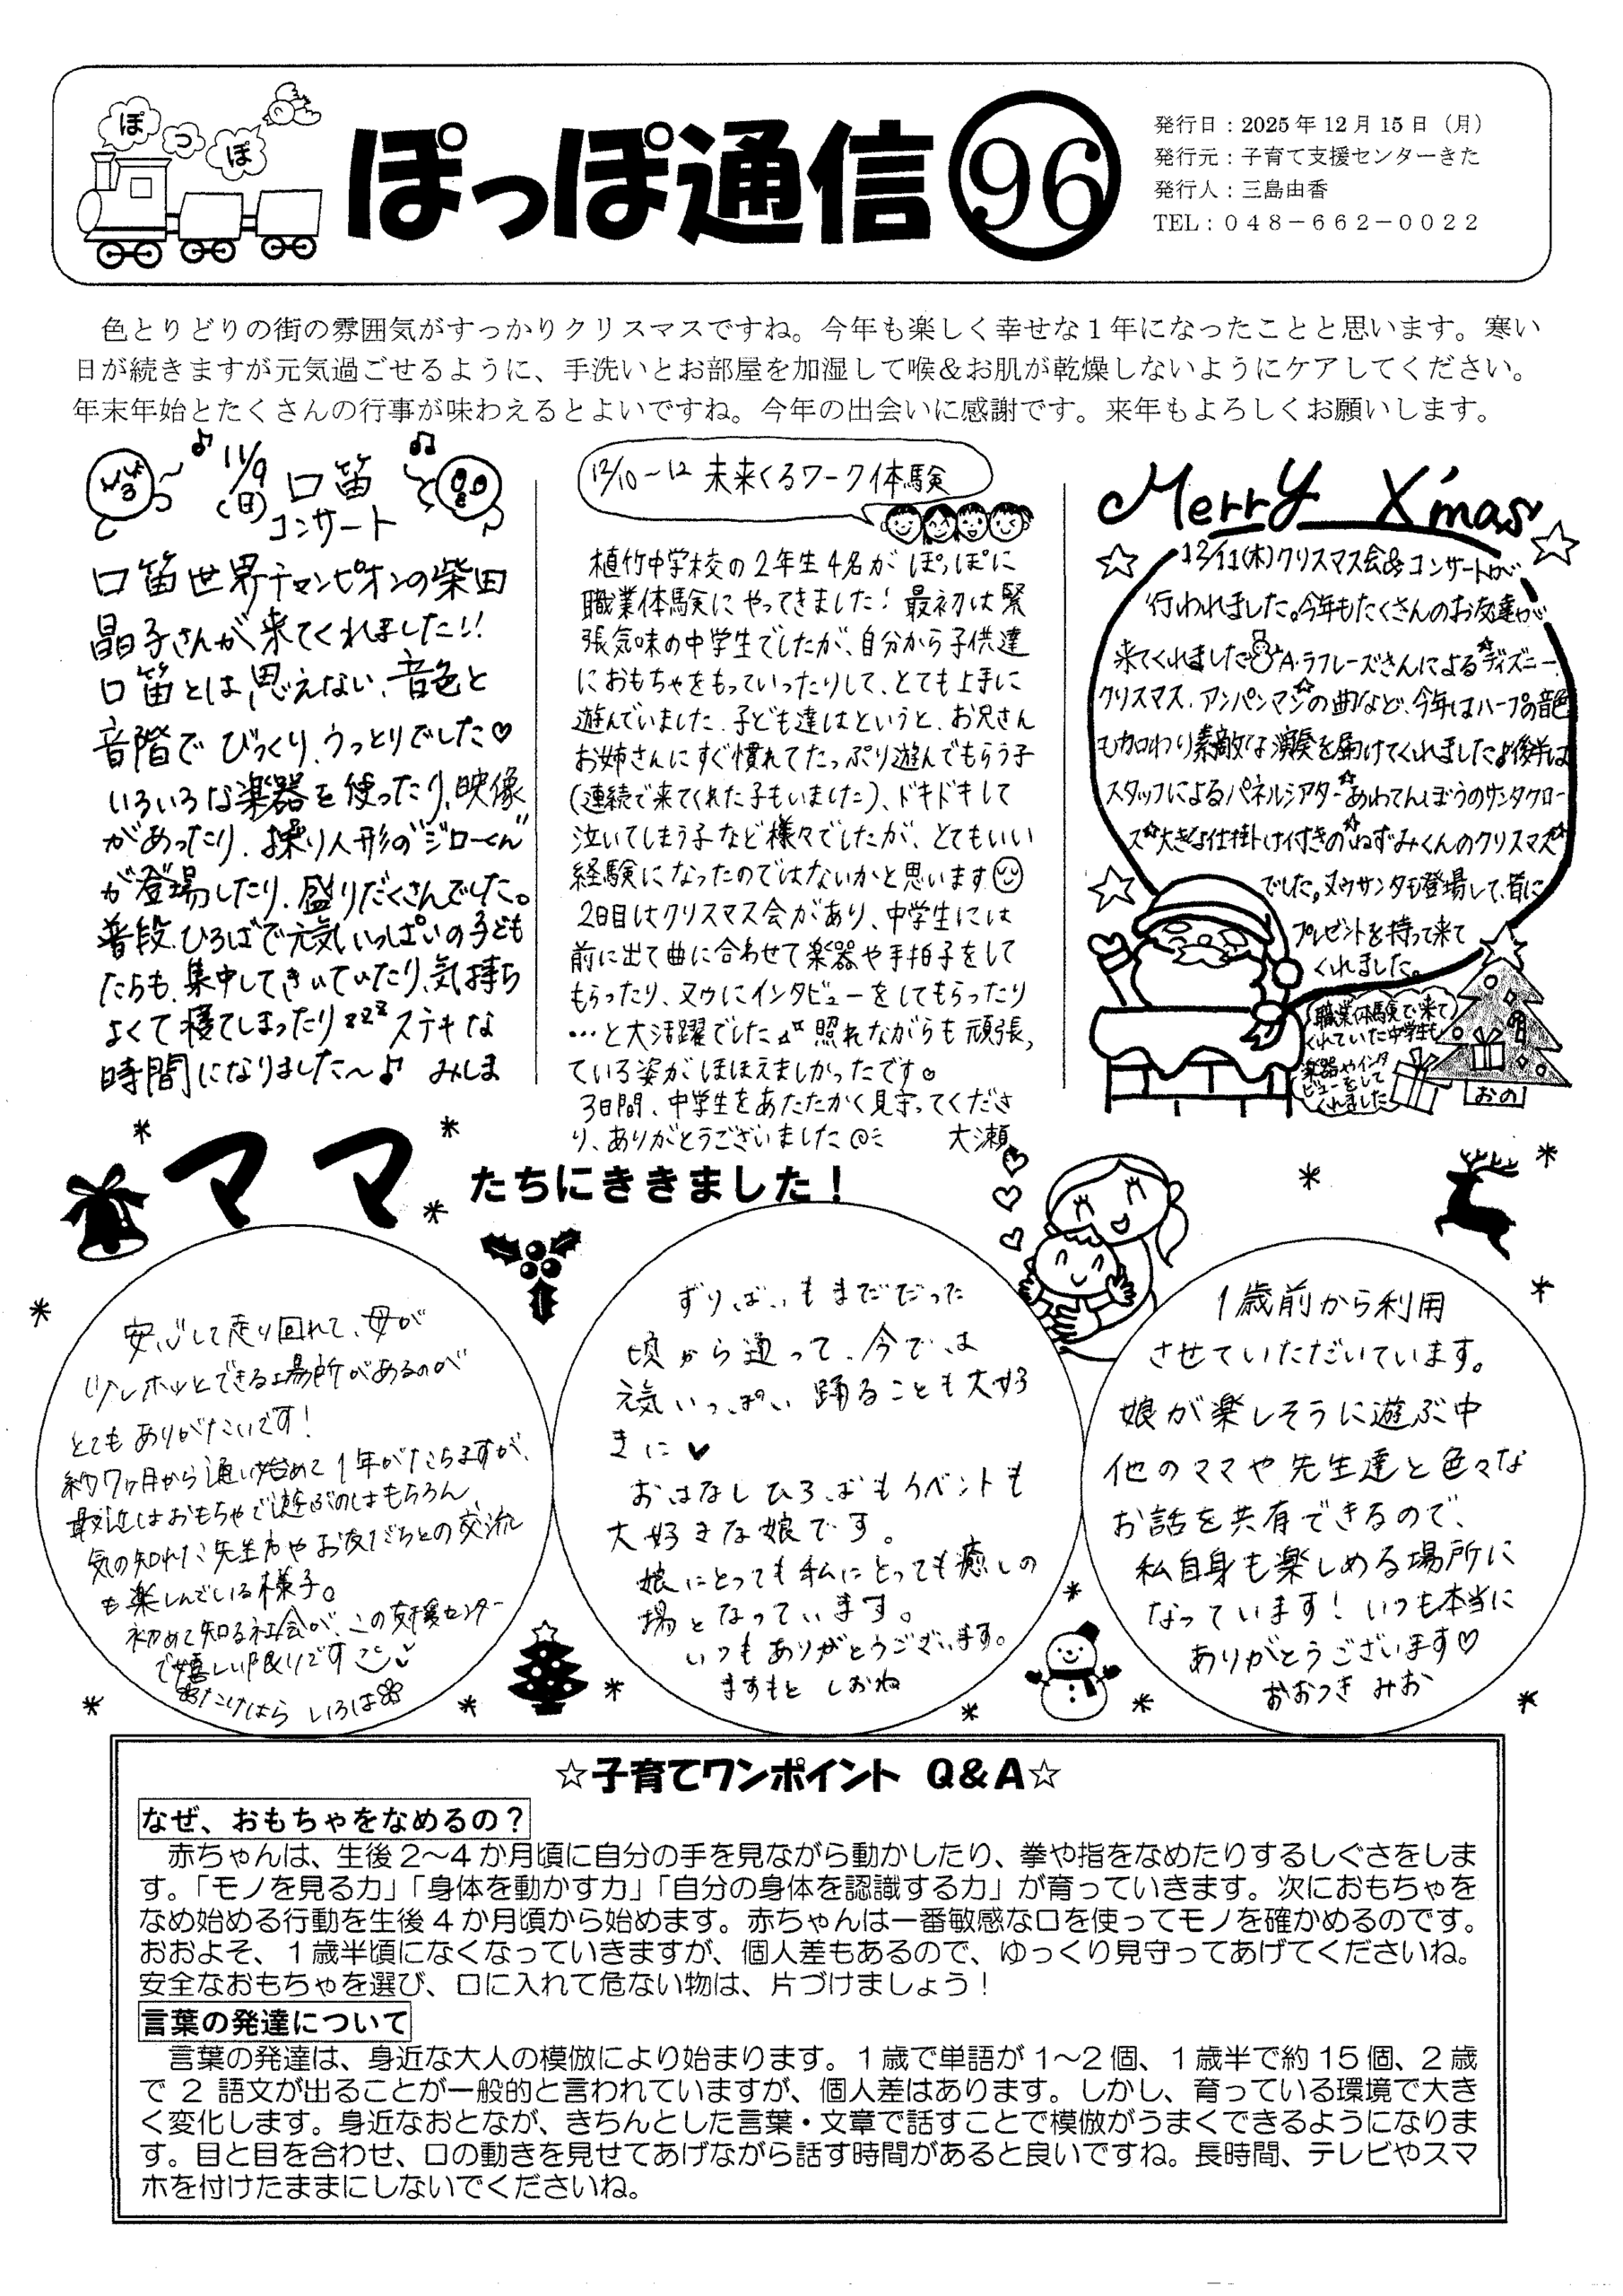 ぽ
っ
ぽ
ぽっぽ通信 96
発行日：2025年12月15日（月）
発行元：子育て支援センターきた
発行人：三島由香
TEL：048－662－0022
色とりどりの街の雰囲気がすっかりクリスマスですね。今年も楽しく幸せな１年になったことと思います。寒い
日が続きますが元気過ごせるように、手洗いとお部屋を加湿して喉＆お肌が乾燥しないようにケアしてください。
年末年始とたくさんの行事が味わえるとよいですね。今年の出会いに感謝です。来年もよろしくお願いします。
11/9
(日)
口笛
コンサート
口笛世界チャンピオンの柴田
晶子さんが来てくれました!!
口笛とは思えない、音色と
音階でびっくり、うっとりでした♡
いろいろな楽器を使ったり、映像
があったり、操り人形の"ジローくん"
が登場したり、盛りだくさんでした。
普段、ひろばで元気いっぱいの子ども
たちも、集中してきいていたり、気持ち
よくて寝てしまったりzzzステキな
時間になりました〜♪ みしま
12/10〜12 未来くるワーク体験
植竹中学校の2年生4名がぽっぽに
職業体験にやってきました！最初は緊
張気味の中学生でしたが、自分から子供達
におもちゃをもっていったりして、とても上手に
遊んでいました。子ども達はというと、お兄さん
お姉さんにすぐ慣れてたっぷり遊んでもらう子
(連続で来てくれた子もいました)、ドキドキして
泣いてしまう子など様々でしたが、とてもいい
経験になったのではないかと思います
2日目はクリスマス会があり、中学生には
前に出て曲に合わせて楽器や手拍子をして
もらったり、ヌゥにインタビューをしてもらったり
…と大活躍でした 照れながらも頑張っ
ている姿がほほえましかったです。
3日間、中学生をあたたかく見守ってくださ
り、ありがとうございました 大瀬
Merry X'mas
12/11(木)クリスマス会&コンサートが
行われました。今年もたくさんのお友達が
来てくれました A・ラフレーズさんによる☆ディズニー
クリスマス、アンパンマン☆の曲など、今年はハープの音色
も加わり素敵な演奏を届けてくれました♪後半は
スタッフによるパネルシアター☆あわてんぼうのサンタクロー
ス☆大きな仕掛け付きの☆ねずみくんのクリスマス☆
でした。ヌゥサンタも登場して、皆に
プレゼントを持って来て
くれました。
職業体験で来て
くれていた中学生も
楽器やインタ
ビューをして
くれました
おの
ママたちにききました！
安心して走り回れて、母が
少しホッとできる場所があるのが
とてもありがたいです！
約7ヶ月から通い始めて1年がたちますが、
最近はおもちゃで遊ぶのはもちろん
気の知れた先生方やお友だちとの交流
も楽しんでいる様子。
初めて知る社会が、この支援センター
で嬉しい限りです
たけはら いろは
ずりばいもまだだった
頃から通って、今では
元気いっぱい踊ることも大好
きに♥
おはなしひろばもイベントも
大好きな娘です。
娘にとっても私にとっても癒しの
場となっています。
いつもありがとうございます。
ますもと しおね
1歳前から利用
させていただいています。
娘が楽しそうに遊ぶ中
他のママや先生達と色々な
お話を共有できるので、
私自身も楽しめる場所に
なっています！いつも本当に
ありがとうございます♡
おおつき みお
☆子育てワンポイント Q＆A☆
なぜ、おもちゃをなめるの？
赤ちゃんは、生後２〜４か月頃に自分の手を見ながら動かしたり、拳や指をなめたりするしぐさをしま
す。「モノを見る力」「身体を動かす力」「自分の身体を認識する力」が育っていきます。次におもちゃを
なめ始める行動を生後４か月頃から始めます。赤ちゃんは一番敏感な口を使ってモノを確かめるのです。
おおよそ、１歳半頃になくなっていきますが、個人差もあるので、ゆっくり見守ってあげてくださいね。
安全なおもちゃを選び、口に入れて危ない物は、片づけましょう！
言葉の発達について
言葉の発達は、身近な大人の模倣により始まります。１歳で単語が１〜２個、１歳半で約15個、２歳
で２語文が出ることが一般的と言われていますが、個人差はあります。しかし、育っている環境で大き
く変化します。身近なおとなが、きちんとした言葉・文章で話すことで模倣がうまくできるようになりま
す。目と目を合わせ、口の動きを見せてあげながら話す時間があると良いですね。長時間、テレビやスマ
ホを付けたままにしないでくださいね。